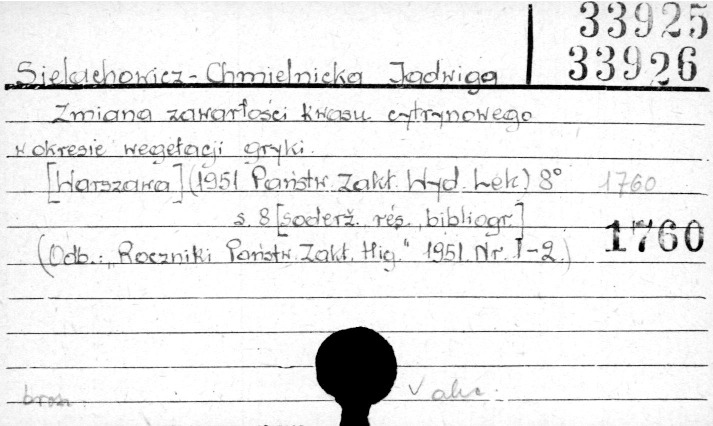 33925
33926
Sielachowicz-Chmielnicka Jadwiga
Zmiana zawartości kwasu cytrynowego
w okresie wegetacji gryki.
[Warszawa] (1951 Państw. Zakł. Wyd. Lek) 8° 1760
s. 8 [soderż., rés., bibliogr.]
1760
(Odb.: "Roczniki Państw. Zakł. Hig." 1951. Nr. 1-2.)
brosz.